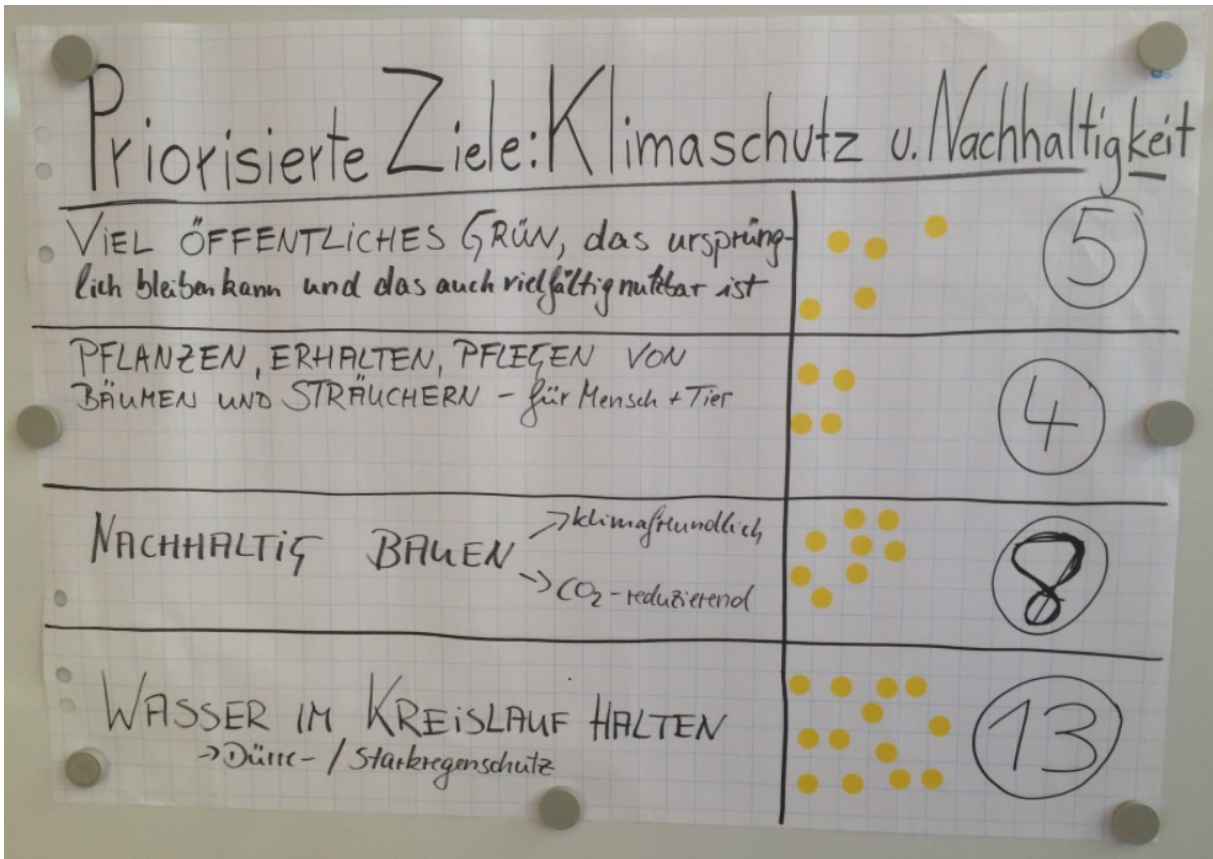 Priorisierte Ziele: Klimaschutz u. Nachhaltigkeit
VIEL ÖFFENTLICHES GRÜN, das ursprüng-
lich bleiben kann und das auch vielfältig nutzbar ist
5
PFLANZEN, ERHALTEN, PFLEGEN VON
BÄUMEN UND STRÄUCHERN - für Mensch + Tier
4
NACHHALTIG BAUEN
→ klimafreundlich
→ CO₂-reduzierend
8
WASSER IM KREISLAUF HALTEN
→ Dürre- / Starkregenschutz
13